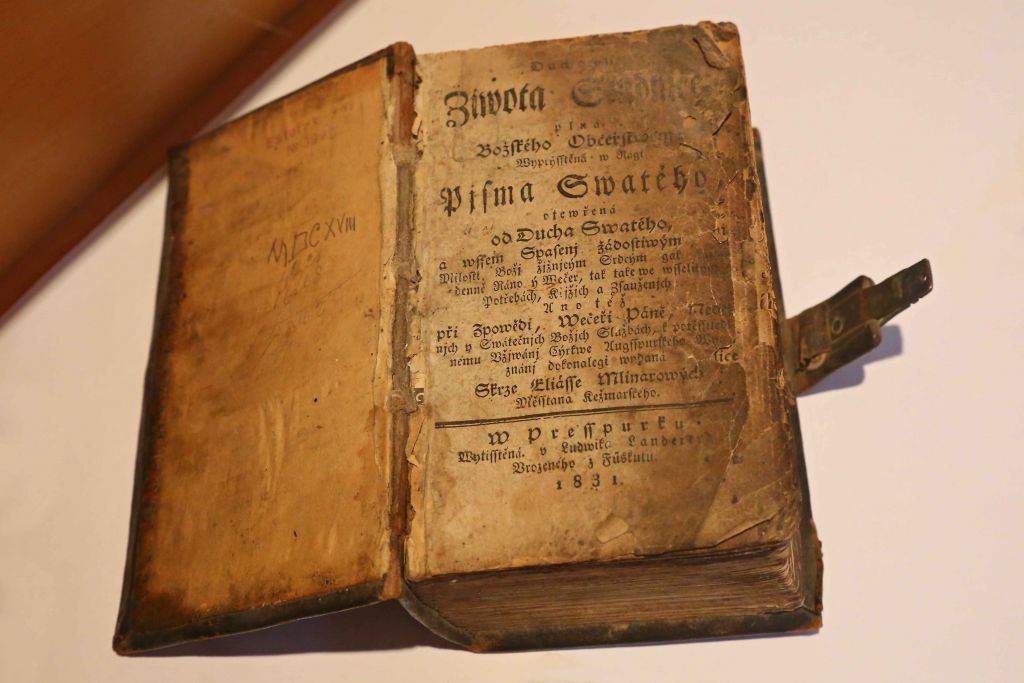 MDCXVIII
Duchownj
Žiwota Studnice
plná
Božského Občerstwenj
Wyprysstěná w Kragi
Pjsma Swatého,
otewřená
od Ducha Swatého,
a wssem Spasenj žádostiwým
Milosti Božj žjžniwým Srdcým gak
denně Ráno y Wečer, tak take we wsselikých
Potřebách, Křjžjch a Zsauženjch
Anotěž
při Zpowědi, Wečeři Páně,
njch y Swátečnjch Božjch Službách, k potěssitedl
nému Vžjwánj Cýrkwe Augsspurského Wy
znánj dokonalegi wydaná
sýce
Skrze Eliásse Mlinarowých
Měsstana Kežmarského.
W Presspurku
Wytisstěná v Ludwika Landerera
Vrozeného z Füskutu.
1831.